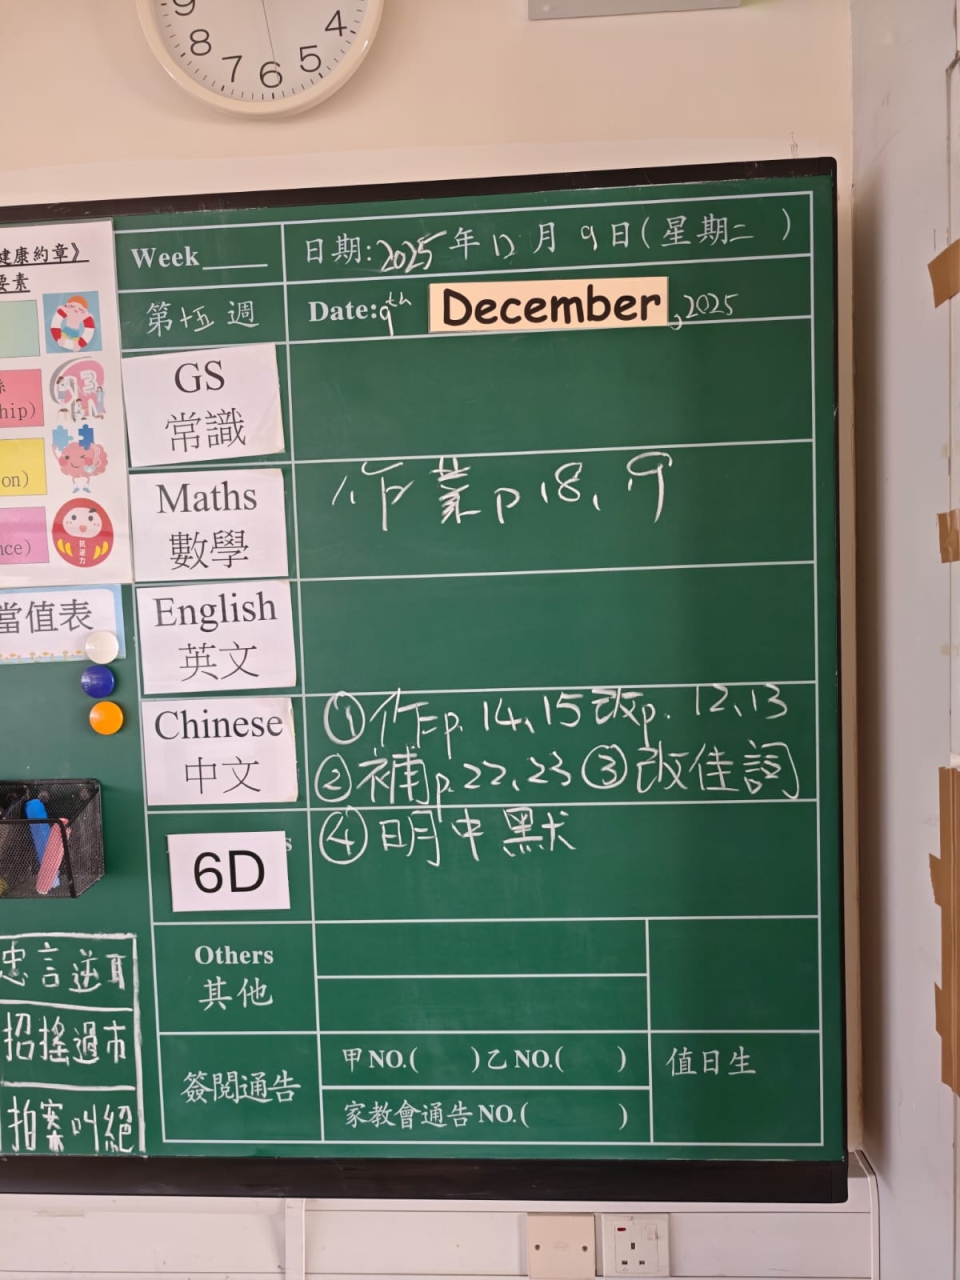 9
8
7 6 5 4
健康約章》
要素
hip)
on)
nce)
當值表
Week
日期:2025年12月9日(星期二 )
第十五週
Date:9th December,2025
GS
常識
Maths
數學
作業p18、19
English
英文
Chinese
中文
①作p.14、15改p.12、13
②補p.22、23③改佳詞
④明中默
6D
s
Others
其他
簽閱通告
甲NO.( )乙NO.( )
家教會通告NO.( )
值日生
忠言逆耳
招搖過市
拍案叫絕